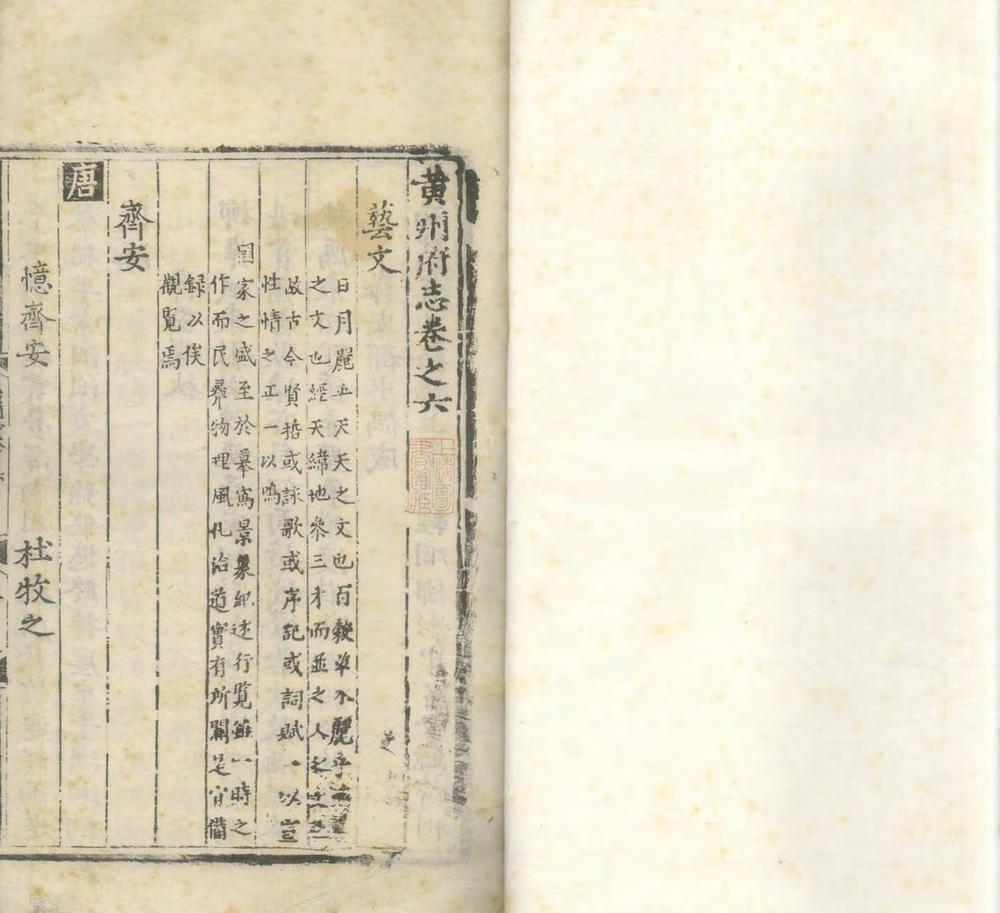 黄州府志卷之六
藝文
日月麗乎天天之文也百穀草木麗乎
之文也經天緯地參三才而並之人之文
故古今賢哲或詠歌或序記或詞賦一以
性情之正一以鳴
國家之盛至於摹寫景象紀述行覽雖一時之
作而民彛物理風化治道實有所關是宜備
録以俟
觀覽焉
齊安
唐
憶齊安 杜牧之